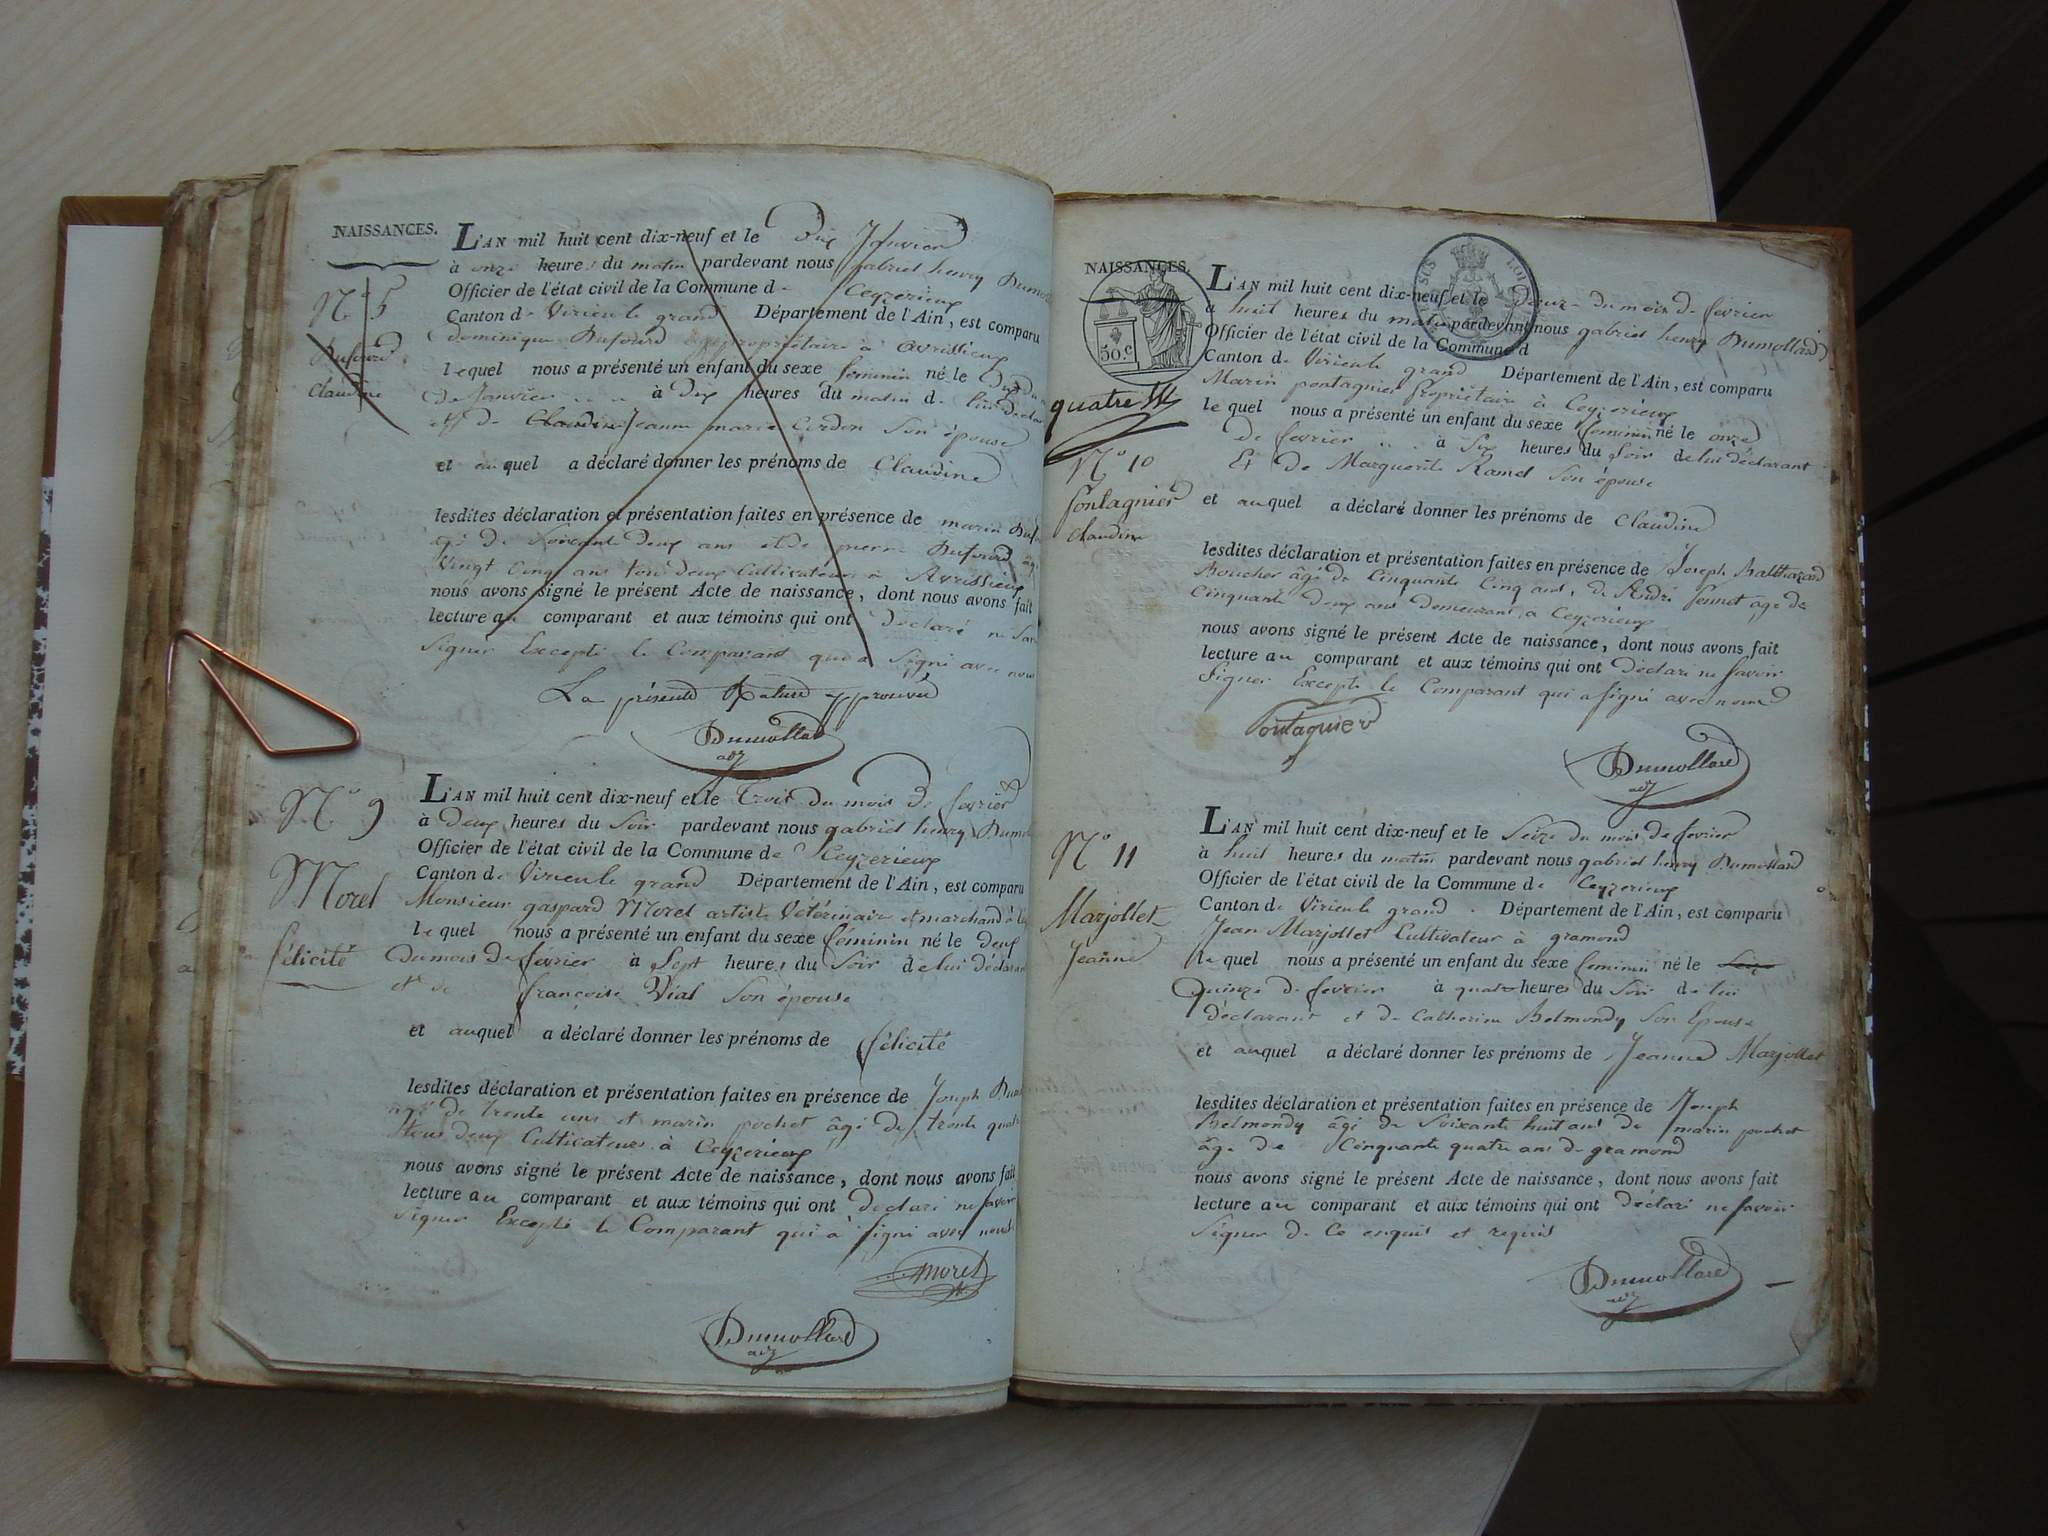 NAISSANCES.
N.° 5
Dufourd
Claudine
L'AN mil huit cent dix-neuf et le Dix Janvier
à onze heures du matin pardevant nous gabriel henry
Officier de l'état civil de la Commune de Ceyzerieux
Canton de Virieu le grand Département de l'Ain, est comparu
dominique Dufourd propriétaire à avrissieux
lequel nous a présenté un enfant du sexe féminin né le Dix
de Janvier à Dix heures du matin de lui
et de Claudine Jeanne marie Cordon Son épouse
et auquel a déclaré donner les prénoms de Claudine
lesdites déclaration et présentation faites en présence de marin
agé de Soixante deux ans et de pierre Dufourd
Vingt Cinq ans tou deux Cultivateurs à Avrissieux
nous avons signé le présent Acte de naissance, dont nous avons fait
lecture au comparant et aux témoins qui ont Déclaré ne
Signer Excepté le Comparant qui a Signé avec nous
La présente Rature approuvée
Dumollard
adj
N.° 9
Morel
félicité
L'AN mil huit cent dix-neuf et le Trois du mois De fevrier
à Deux heures du Soir pardevant nous gabriel henry
Officier de l'état civil de la Commune de Ceyzerieux
Canton de Virieu le grand Département de l'Ain, est comparu
Monsieur gaspard Morel artiste Vétérinaire et marchand à
lequel nous a présenté un enfant du sexe féminin né le Deux
Du mois De février à Sept heures du Soir de lui Déclarant
et de françoise Vial Son épouse
et auquel a déclaré donner les prénoms de félicité
lesdites déclaration et présentation faites en présence de Joseph
agé de trente uns et marin pochet âgé De trente quatre
tous deux Cultivateurs à Ceyzerieux
nous avons signé le présent Acte de naissance, dont nous avons fait
lecture au comparant et aux témoins qui ont declaré ne savoir
Signer Excepté le Comparant qui à signé avec nous
morel
Dumollard
adj
NAISSANCES.
50.c
quatre
N.° 10
pontagnier
Claudine
L'AN mil huit cent dix-neuf et le Douze du mois de fevrier
à huit heures du matin pardevant nous gabriel henry Dumollard
Officier de l'état civil de la Commune d
Canton de Virieu le grand Département de l'Ain, est comparu
Marin pontagnier Propriétaire à Ceyzerieux
lequel nous a présenté un enfant du sexe feminin né le onze
de fevrier à Six heures du Soir de lui déclarant
Et De Marguerite Ramel Son épouse
et auquel a déclaré donner les prénoms de Claudine
lesdites déclaration et présentation faites en présence de Joseph Balthazard
Boucher âgé de Cinquante Cinq ans, de André Sennet age de
Cinquante deux ans demeurant a Ceyzerieux
nous avons signé le présent Acte de naissance, dont nous avons fait
lecture au comparant et aux témoins qui ont Déclaré ne savoir
Signer Excepté le Comparant qui a signé avec nous
Pontagnier
Dumollard
adj
N.° 11
Marjollet
Jeanne
L'AN mil huit cent dix-neuf et le Seize du mois de fevrier
à huit heures du matin pardevant nous gabriel henry Dumollard
Officier de l'état civil de la Commune de Ceyzerieux
Canton de Virieu le grand. Département de l'Ain, est comparu
Jean Marjollet Cultivateur à gramond
lequel nous a présenté un enfant du sexe feminin né le Seize
Quinze de fevrier à quatre heures du Soir de lui
déclarant et de Catherine Belmondy Son Epouse
et auquel a déclaré donner les prénoms de Jeanne Marjollet
lesdites déclaration et présentation faites en présence de Joseph
Belmondy âgé de Soixante huit ans de marin pochet
âgé de Cinquante quatre ans de gramond
nous avons signé le présent Acte de naissance, dont nous avons fait
lecture au comparant et aux témoins qui ont Déclaré ne savoir
Signer De Ce enquis et requis
Dumollard
adj